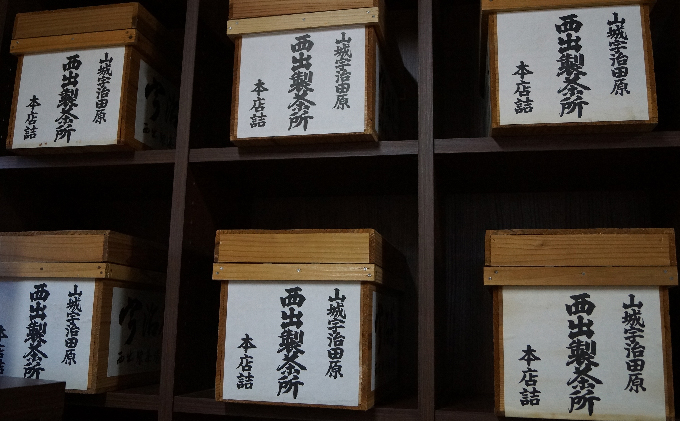 山城宇治田原
西出製茶所
本店詰
山城宇治田原
西出製茶所
本店詰
山城宇治田原
西出製茶所
本店詰
山城宇治田原
西出製茶所
本
山城宇治田原
西出製茶所
本店詰
山城宇治田原
西出製茶所
本店詰